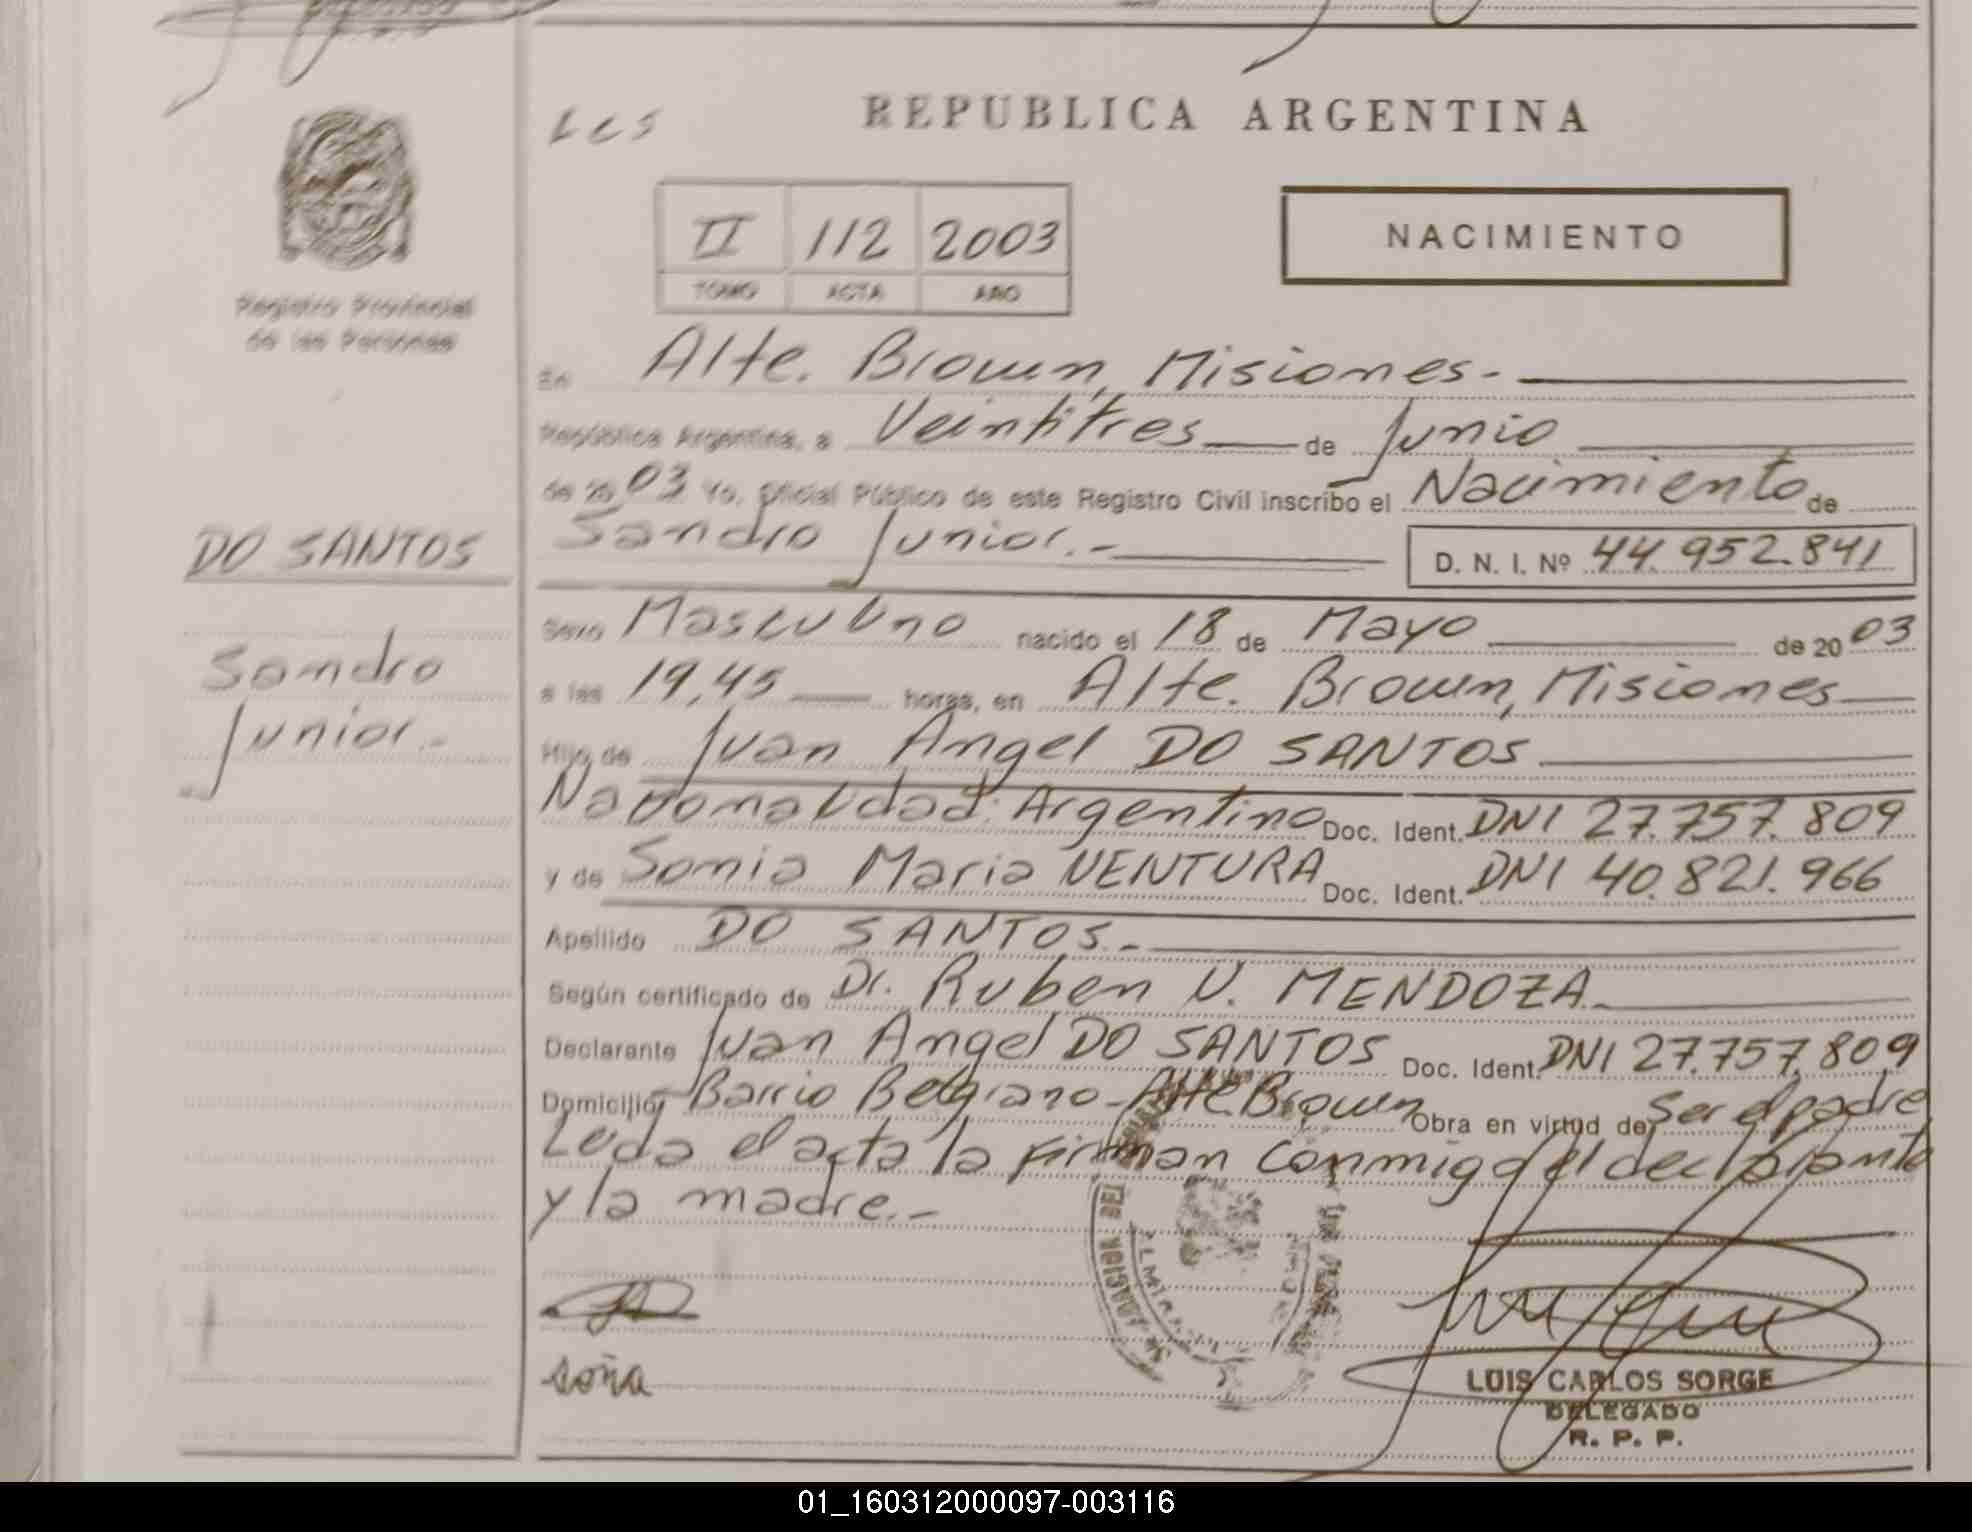 LCS
REPUBLICA ARGENTINA
II 112 2003
TOMO ACTA AÑO
NACIMIENTO
Registro Provincial
de las Personas
En Alte. Brown, Misiones.-
República Argentina, a Veintitres de Junio
de 2003 Yo, Oficial Público de este Registro Civil inscribo el Nacimiento de
Sandro Junior.- D. N. I. Nº 44.952.841
DO SANTOS
Sandro
Junior.-
Sexo Masculino nacido el 18 de Mayo de 2003
a las 19,45 horas, en Alte. Brown, Misiones
Hijo de Juan Angel DO SANTOS
Nacionalidad: Argentino Doc. Ident. DNI 27.757.809
y de Sonia Maria VENTURA Doc. Ident. DNI 40.821.966
Apellido DO SANTOS.-
Según certificado de Dr. Ruben V. MENDOZA.
Declarante Juan Angel DO SANTOS Doc. Ident. DNI 27.757.809
Domicilio Barrio Belgrano - Alte Brown Obra en virtud de Ser el padre
Leida el acta la firman conmigo el declarante
y la madre.-
soña
LUIS CARLOS SORGE
DELEGADO
R. P. P.
01_160312000097-003116